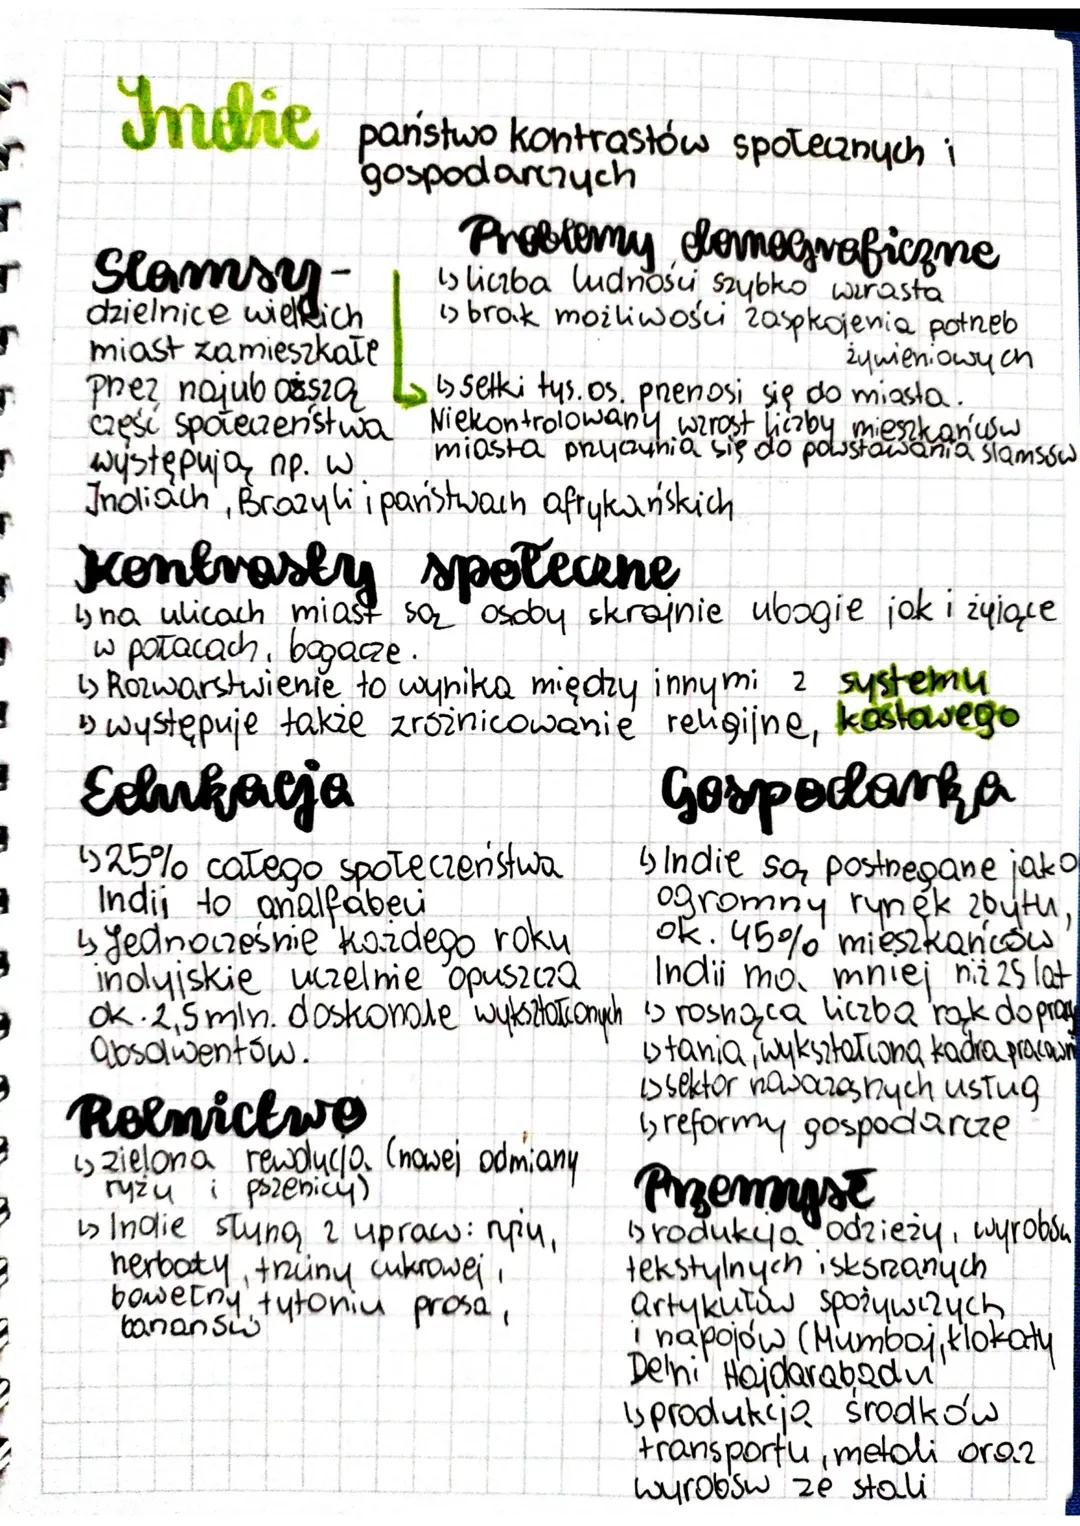 Indie
państwo kontrastów społecznych i
gospodarczych
Slamsy-
dzielnice wielkich
miast zamieszkałe
przez najuboższą
część społeczeństwa
występują np. w
Indiach, Brazyli i państwach afrykańskich
Problemy demograficzne
↳ liczba ludności szybko wzrasta
↳ brak możliwości zaspkojenia potrzeb
żywieniowych
↳ setki tys. os. przenosi się do miasta.
Niekontrolowany wzrost liczby mieszkańców
miasta przyczynia się do powstawania slamsów
Kontrasty społeczne
↳ na ulicach miast są osoby skrajnie ubogie jak i żyjące
w pałacach, bogacze.
↳ Rozwarstwienie to wynika między innymi z systemu
↳ występuje także zróżnicowanie religijne, kastowego
Edukacja
↳ 25% całego społeczeństwa
Indii to analfabeci
↳ Jednocześnie każdego roku
indyjskie uczelnie opuszcza
ok. 2,5 mln. doskonale wykształconych
absolwentów.
Rolnictwo
↳ zielona rewolucja (nowej odmiany
ryżu i pszenicy)
↳ Indie słyną z upraw: ryżu,
herbaty, trzciny cukrowej,
bawełny tytoniu prosa,
bananów
Gospodarka
↳ Indie są postrzegane jako
ogromny rynek zbytu,
ok. 45% mieszkańców
Indii ma mniej niż 25 lat
↳ rosnąca liczba rąk do pracy
↳ tania, wykształcona kadra pracown
↳ sektor nowoczesnych usług
↳ reformy gospodarcze
Przemysł
↳ rodukcja odzieży, wyrobów
tekstylnych i skórzanych
artykułów spożywczych
i napojów (Mumbaj, Klokaty
Delhi Hajdarabadu
↳ produkcja środków
transportu, metali oraz
wyrobów ze stali